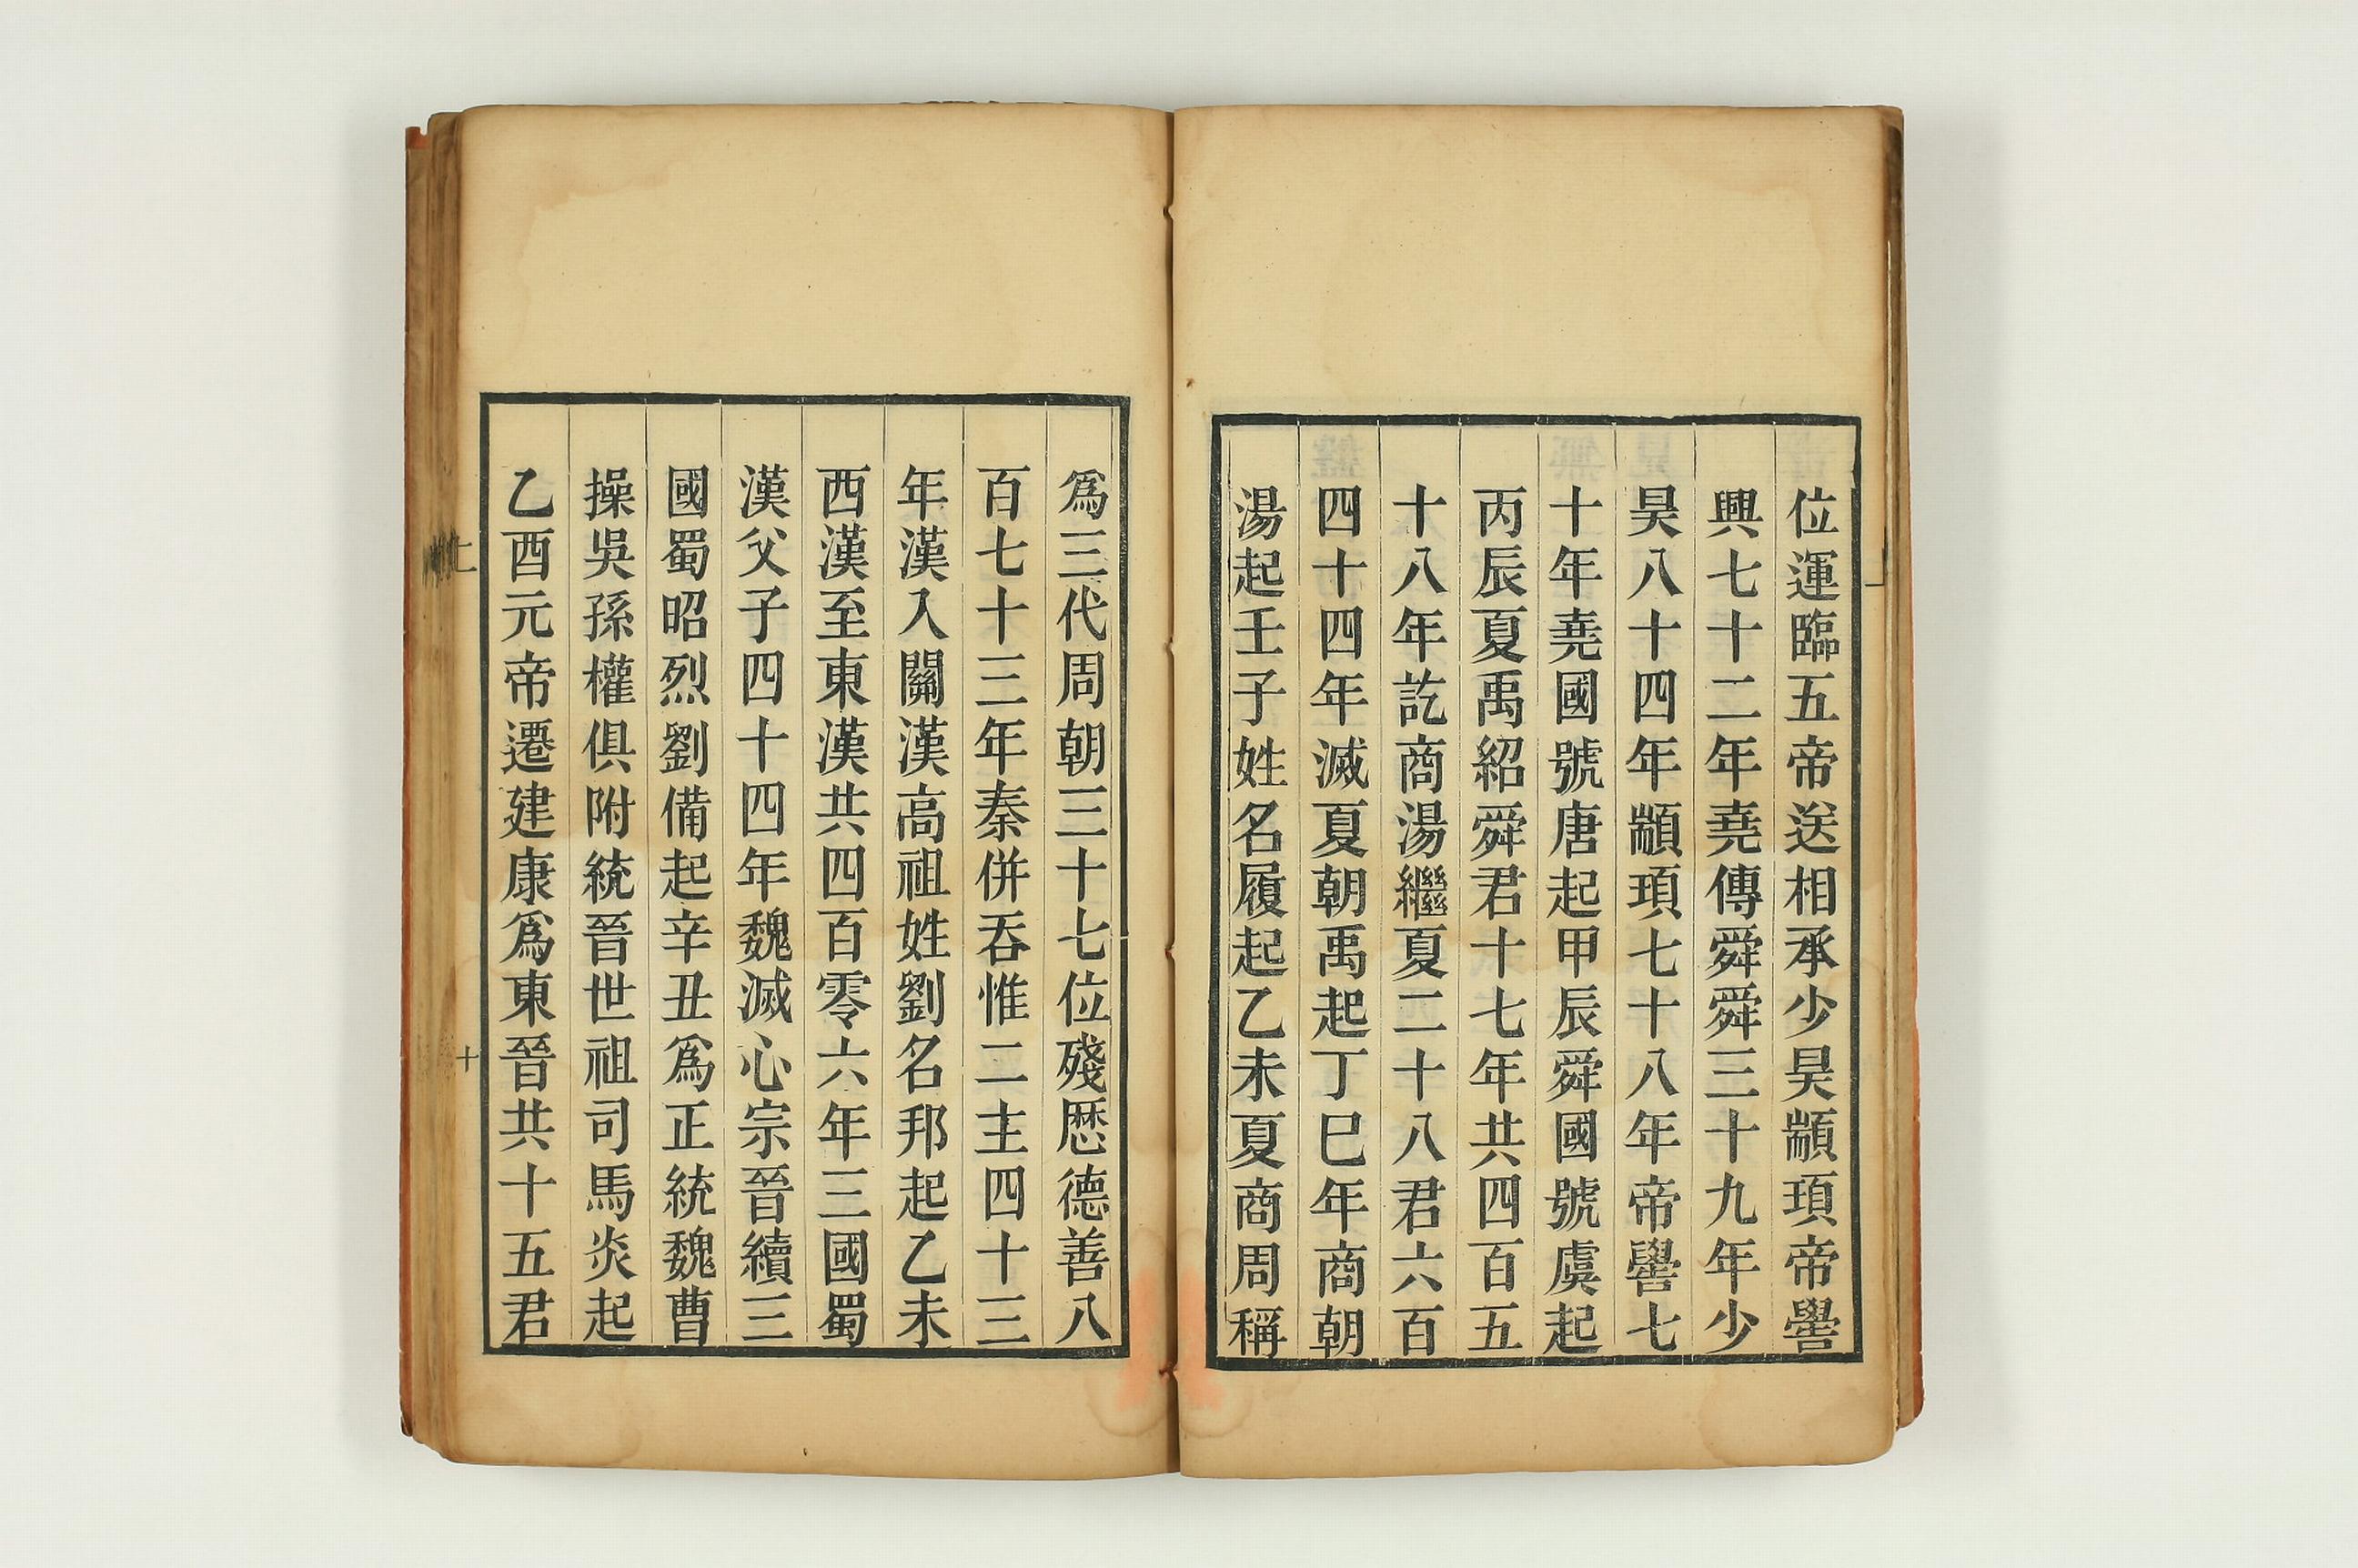 位運臨五帝送相承少昊顓頊帝嚳
興七十二年堯傳舜舜三十九年少
昊八十四年顓頊七十八年帝嚳七
十年堯國號唐起甲辰舜國號虞起
丙辰夏禹紹舜君十七年共四百五
十八年訖商湯繼夏二十八君六百
四十四年滅夏朝禹起丁巳年商朝
湯起壬子姓名履起乙未夏商周稱
爲三代周朝三十七位殘歷德善八
百七十三年秦併吞惟二主四十三
年漢入關漢高祖姓劉名邦起乙未
西漢至東漢共四百零六年三國蜀
漢父子四十四年魏滅心宗晉續三
國蜀昭烈劉備起辛丑爲正統魏曹
操吳孫權俱附統晉世祖司馬炎起
乙酉元帝遷建康爲東晉共十五君
十